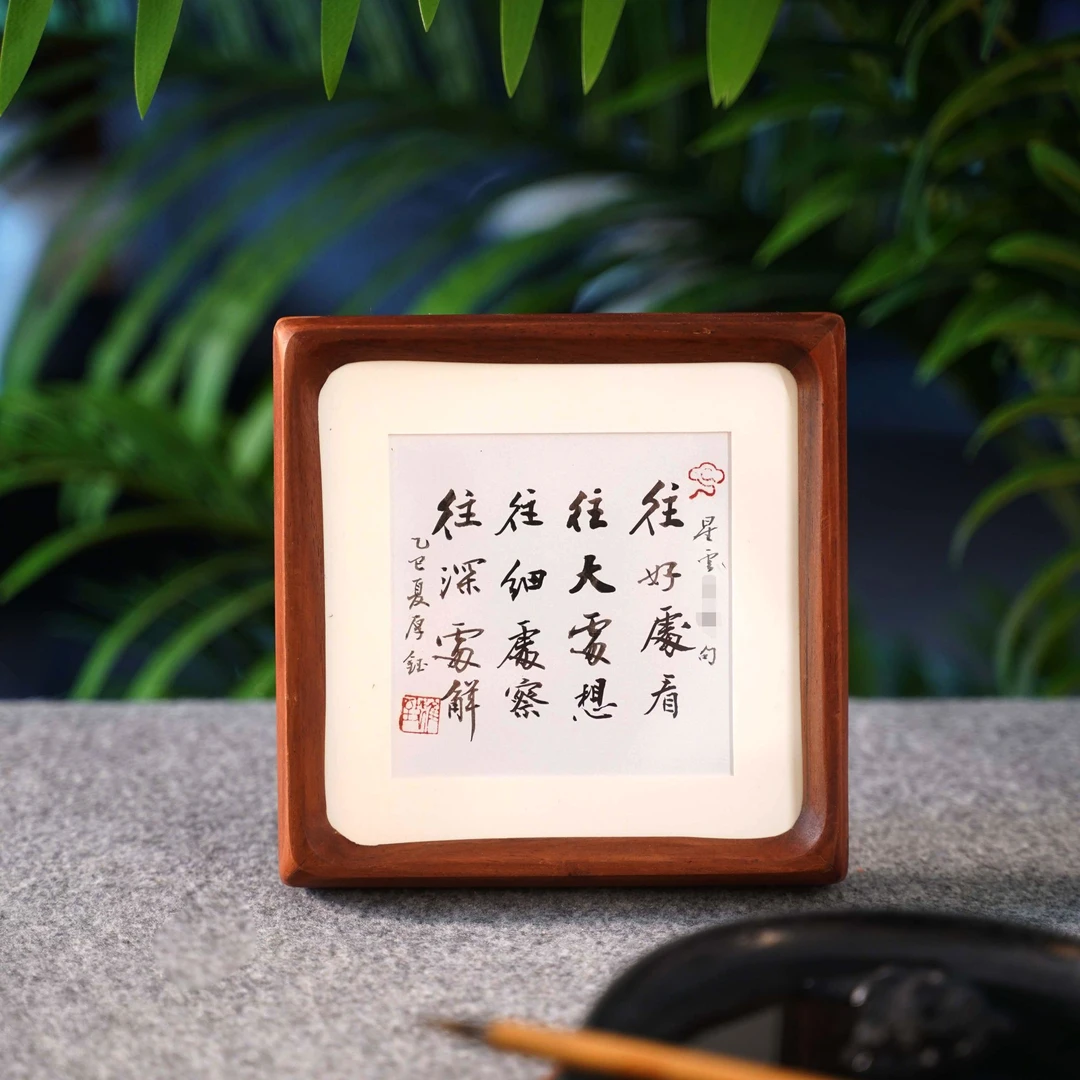 星雲
句
往好處看
往大處想
往細處察
往深處解
乙巳夏厚鈺